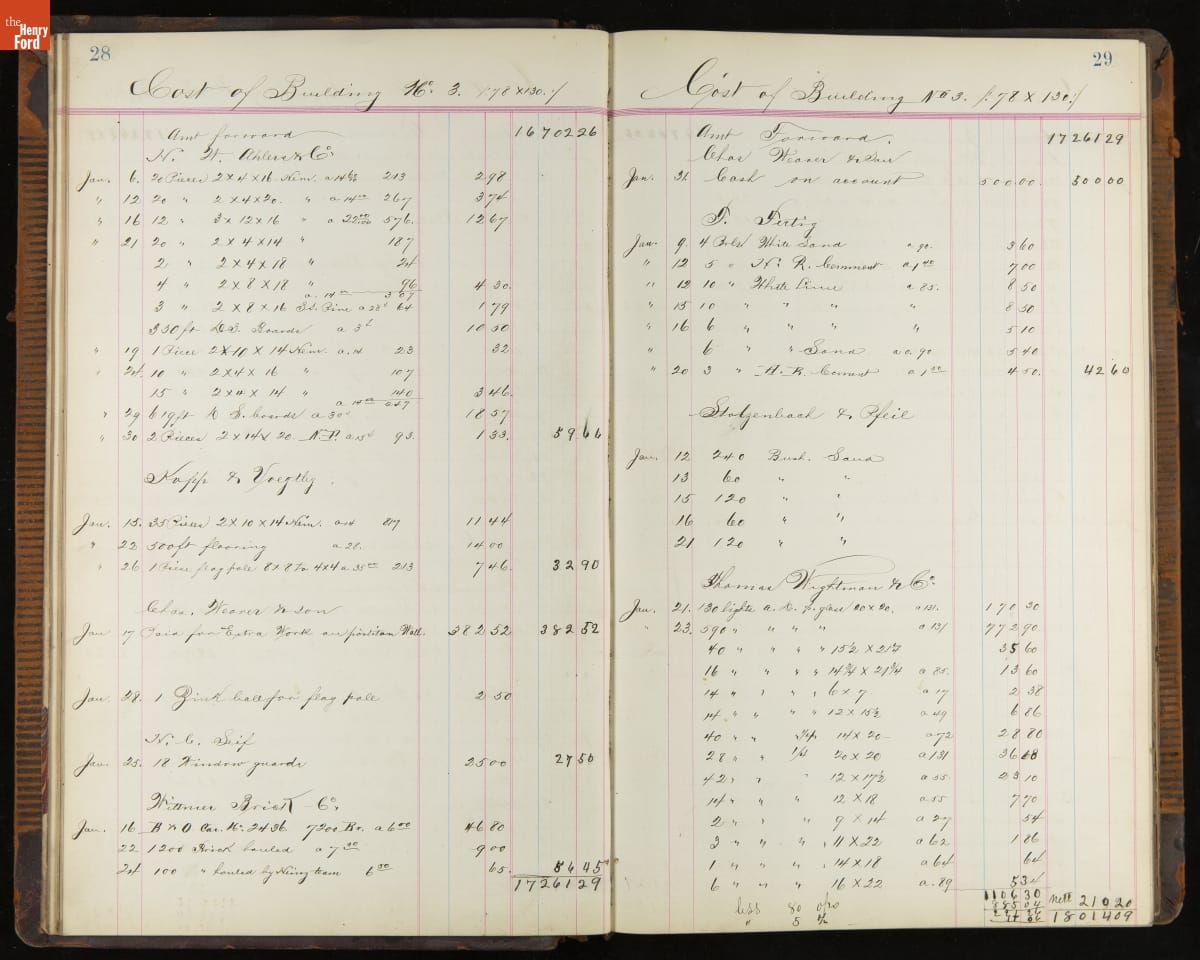 the Henry Ford
28
Cost of Building No. 3. (78 x 130.)
Amt forward 16702 26
N. W. Ahlers & Co.
Jan. 6. 20 Pieces 2 x 4 x 16 Hem. a 14 213 2 98
" 12 20 " 2 x 4 x 20. " a 14 267 3 74
" 16 12 " 3 x 12 x 16 " a 22 576. 12 67
" 21 20 " 2 x 4 x 14 " 187
2 " 2 x 4 x 18 " 24
4 " 2 x 8 x 18 " 96 4 30
a. 14 307
3 " 2 x 8 x 16 Pine a 28 64 1 79
350 ft D.S. Boards a 3 10 50
" 19 1 Piece 2 x 10 x 14 Hem. a 14 23 32
" 24. 10 " 2 x 4 x 16 " 107
15 " 2 x 4 x 14 " 140 3 46
a 14 247
" 29 619 ft D S. boards a 30 18 57
" 30 2 Pieces 2 x 14 x 20. a 93. 1 33. 59 66
Kopp & Voegtly.
Jan. 15. 35 Pieces 2 x 10 x 14 Hem. a 14 817 11 44
" 22 500 ft flooring a 28. 14 00
" 26 1 Piece flag pole 8 x 8 to 4 x 4 a 35 213 7 46. 32 90
Chas. Weaver & Son
Jan 17 Paid for Extra Work on partition Wall. 382 52 382 52
Jan. 28. 1 Zink ball for flag pole 2 50
N. C. Seif
Jan. 25. 18 Window guards 25 00 27 50
Wittmer Brick Co.
Jan. 16 B & O Car. No. 2436 7200 Br. a 6 46 80
22 1200 Brick hauled a 7 9 00
24 100 " hauled by team 6 65. 56 45
17261 29
29
Cost of Building No 3. (78 x 130.)
Amt Forward. 17261 29
Chas Weaver & Son
Jan. 31. Cash on account 500 00. 500 00
F. Fertig
Jan. 9. 4 Bbls White Sand a 90. 3 60
" 12 5 " N. R. Cemment a 1 40 7 00
" 12 10 " White Lime a 85. 8 50
" 15 10 " " " " 8 50
" 16 6 " " " " 5 10
" 6 " " Sand a 90 5 40
" 20 3 " Cement a 1 50 4 50. 42 60
Stolzenbach & Pfeil
Jan. 12 240 Bush. Sand
13 60 " "
15 120 " "
16 60 " "
21 120 " "
Thomas Wightman & Co.
Jan. 21. 130 lights glass 20 x 20. a 131. 170 30
" 23. 590 " " " " a 131 772 90
40 " " " " 15½ x 21¾ 35 60
16 " " " " 14¾ x 21¾ a 85. 13 60
14 " " " " 6 x 7 a 17 2 38
14 " " " " 12 x 15½ a 49 6 86
40 " " 14 x 20 a 72 28 80
28 " " 20 x 20 a 131 36 68
42 " " " 12 x 17½ a 55 23 10
14 " " " 12 x 18 a 55 7 70
2 " " " 9 x 14 a 27 54
3 " " " 11 x 22 a 62 1 86
1 " " " 14 x 18 a 64 64
6 " " " 16 x 22 a. 89 5 34
1106 30
less 80 o/o 885 04 nett 210 20
" 5 % 18014 09